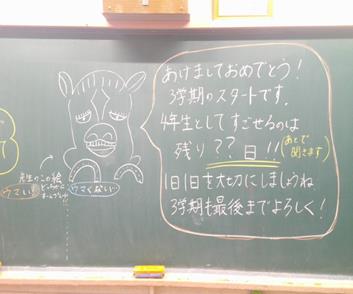 あけましておめでとう!
3学期のスタートです。
4年生としてすごせるのは
残り??日!!
(あとで
聞きます)
1日1日を大切にしましょうね
3学期も最後までよろしく!
先生のこの絵
どっち
ウマい
ウマくない